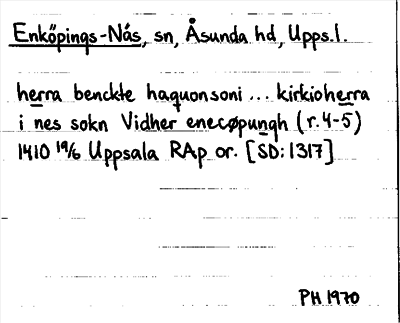 Enköpings-Näs, sn, Åsunda hd, Upps.l.
herra benckte haquonsoni ... kirkioherra
i nes sokn Vidher enecøpungh (r.4-5)
1410 19/6 Uppsala RAp or. [SD:1317]
PH 1970